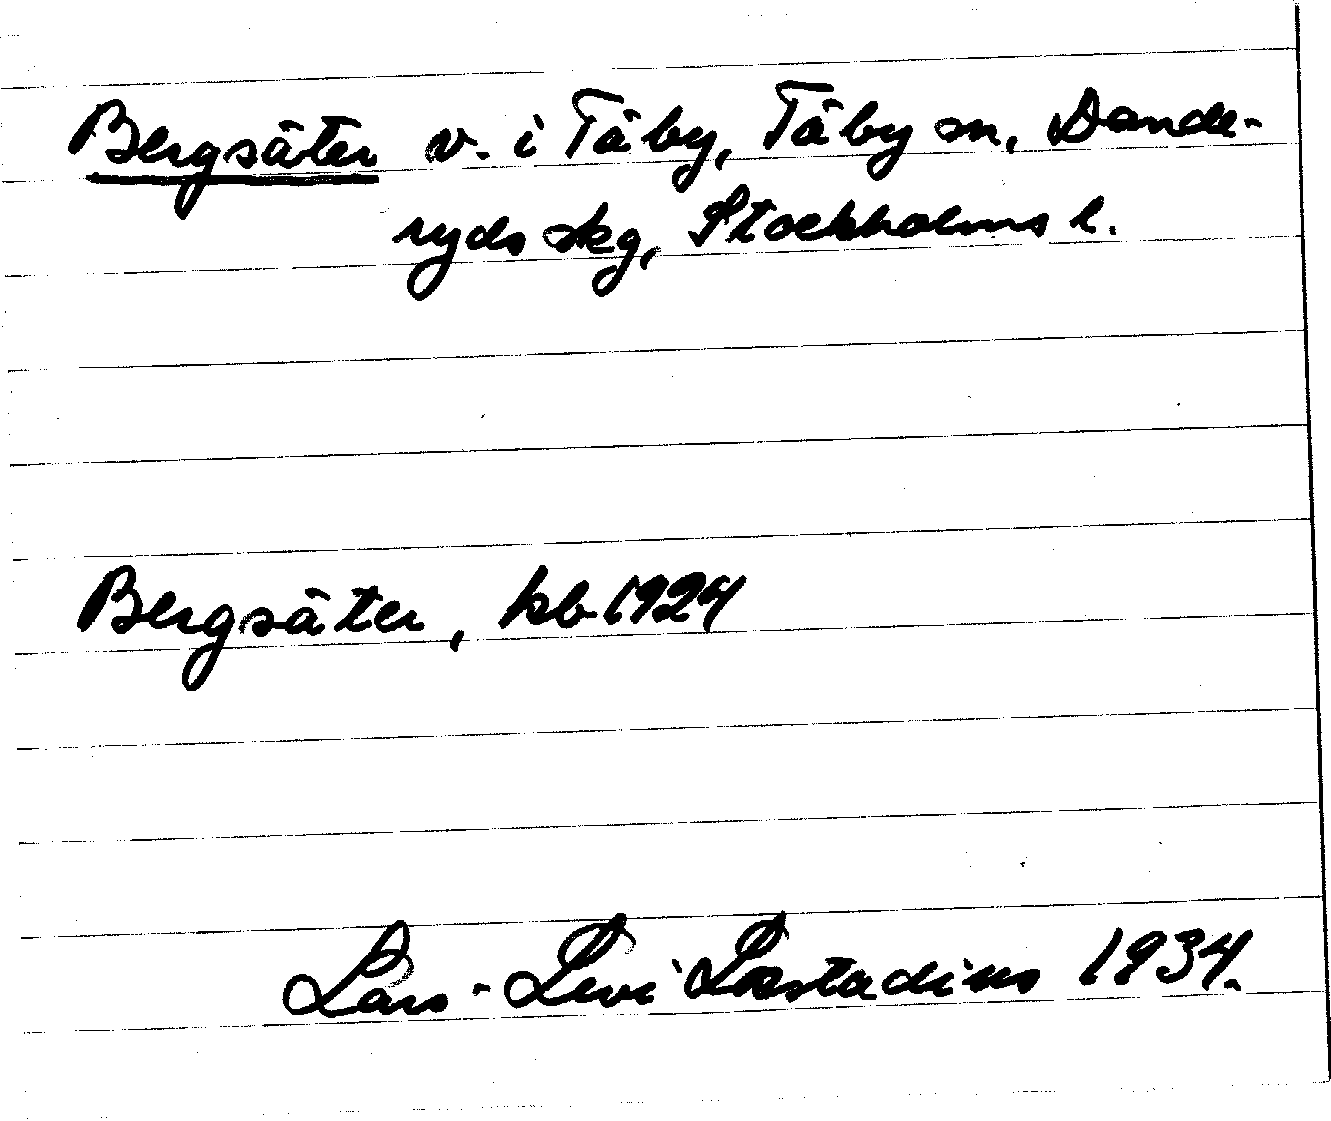 Bergsäter v. i Täby, Täby sn, Dande-
ryds skg, Stockholms l.
Bergsäter, kb 1924
Lars-Levi Læstadius 1934.